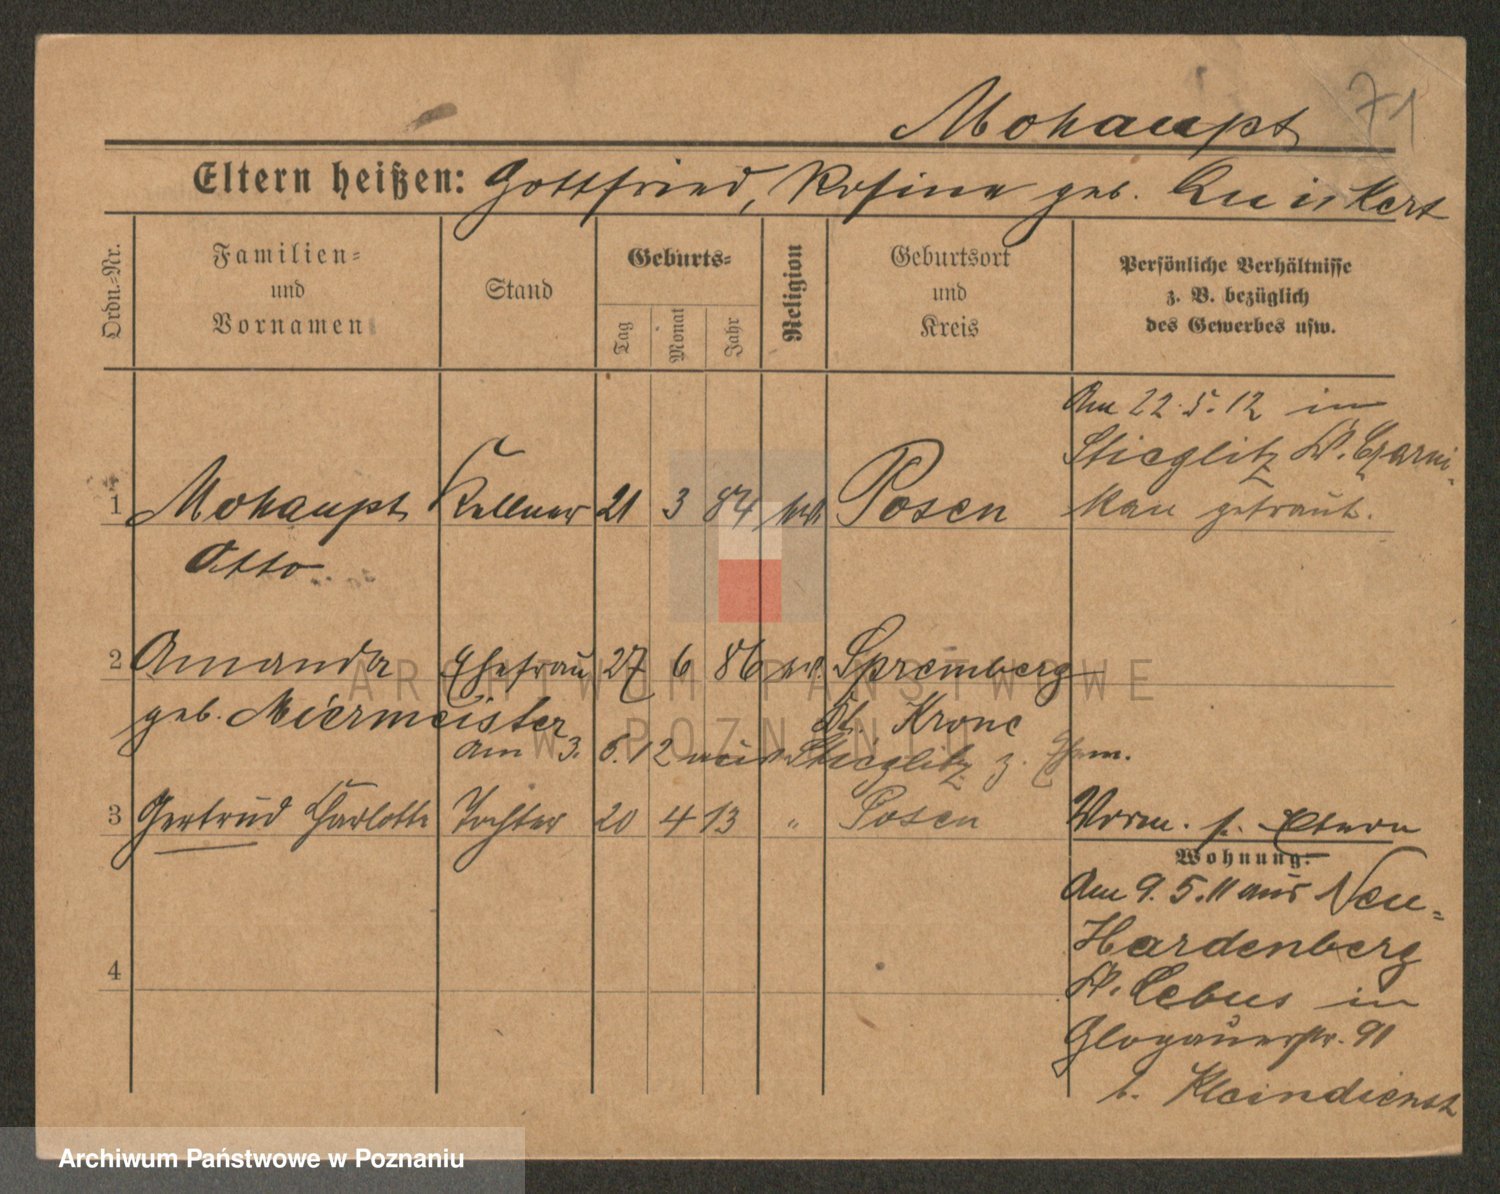 Mohaupt 71
Eltern heißen: Gottfried, Rosine geb.
Ordn.-Nr.
Familien-
und
Vornamen
Stand
Geburts-
Tag
Monat
Jahr
Religion
Geburtsort
und
Kreis
Persönliche Verhältnisse
z. B. bezüglich
des Gewerbes usw.
Am 22.5.12 in
Stieglitz Kr. Czarni-
kau getraut.
1 Mohaupt Kellner 21 3 84 Posen
Otto
2 Amanda Ehefrau 27 6 86 Spremberg
geb. Miermeister Dt. Krone
am 3. 6.12 aus Stieglitz z. Ehem.
3 Gertrud Charlotte Tochter 20 4 13 " Posen
Vorm. s. Eltern
Wohnung:
Am 9.5.11 aus Neu-
Hardenberg
Kr. Lebus in
Glogauerstr. 91
b. Kleindienst
4
ARCHIWUM PAŃSTWOWE
W POZNANIU
Archiwum Państwowe w Poznaniu